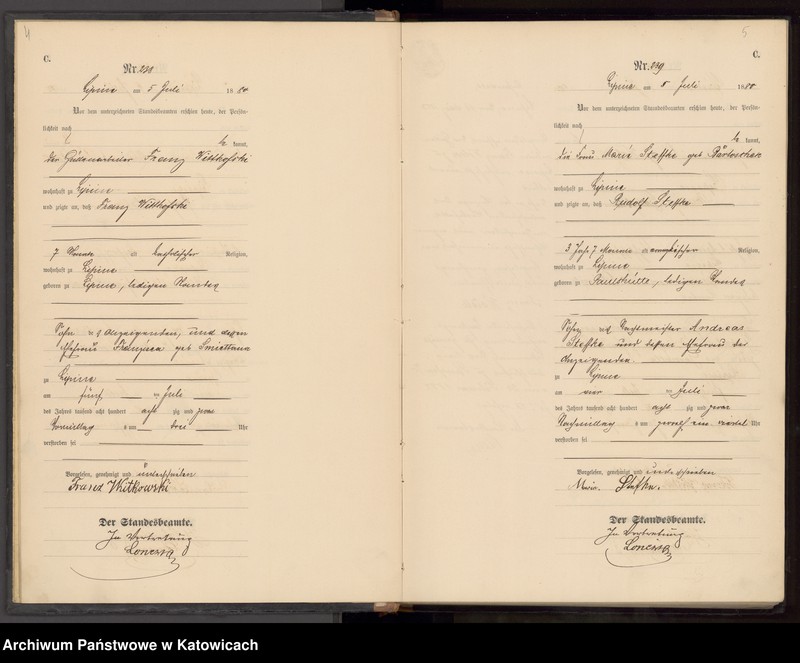 4
C.
Nr. 238
Lipine am 5 Juli 1880
Vor dem unterzeichneten Standesbeamten erschien heute, der Persön-
lichkeit nach
be kannt,
der Hüttenarbeiter Franz Witkofski
wohnhaft zu Lipine
und zeigte an, daß Franz Witkofski
7 Monate alt katholischer Religion,
wohnhaft zu Lipine
geboren zu Lipine, ledigen Standes
Sohn des Anzeigenden, und dessen
Ehefrau Franziska geb Smiettana
zu Lipine
am fünf Juli
des Jahres tausend acht hundert acht zig und
Vormittag s um drei Uhr
verstorben sei
Vorgelesen, genehmigt und unterschrieben
Franz Witkowski
Der Standesbeamte.
In Vertretung
5
C.
Nr. 239
Lipine am 5 Juli 1880
Vor dem unterzeichneten Standesbeamten erschien heute, der Persön-
lichkeit nach
be kannt,
die Frau Marie Steffke geb Bartoschek
wohnhaft zu Lipine
und zeigte an, daß Rudolf Steffke
3 Jahr 7 Monate alt evangelischer Religion,
wohnhaft zu Lipine
geboren zu Paulshütte, ledigen Standes
Sohn des Andreas
Steffke und dessen Ehefrau der
Anzeigenden.
zu Lipine
am vier Juli
des Jahres tausend acht hundert acht zig und
Nachmittag s um zwölf ein viertel Uhr
verstorben sei
Vorgelesen, genehmigt und unterschrieben
Marie Stefke.
Der Standesbeamte.
In Vertretung
Archiwum Państwowe w Katowicach